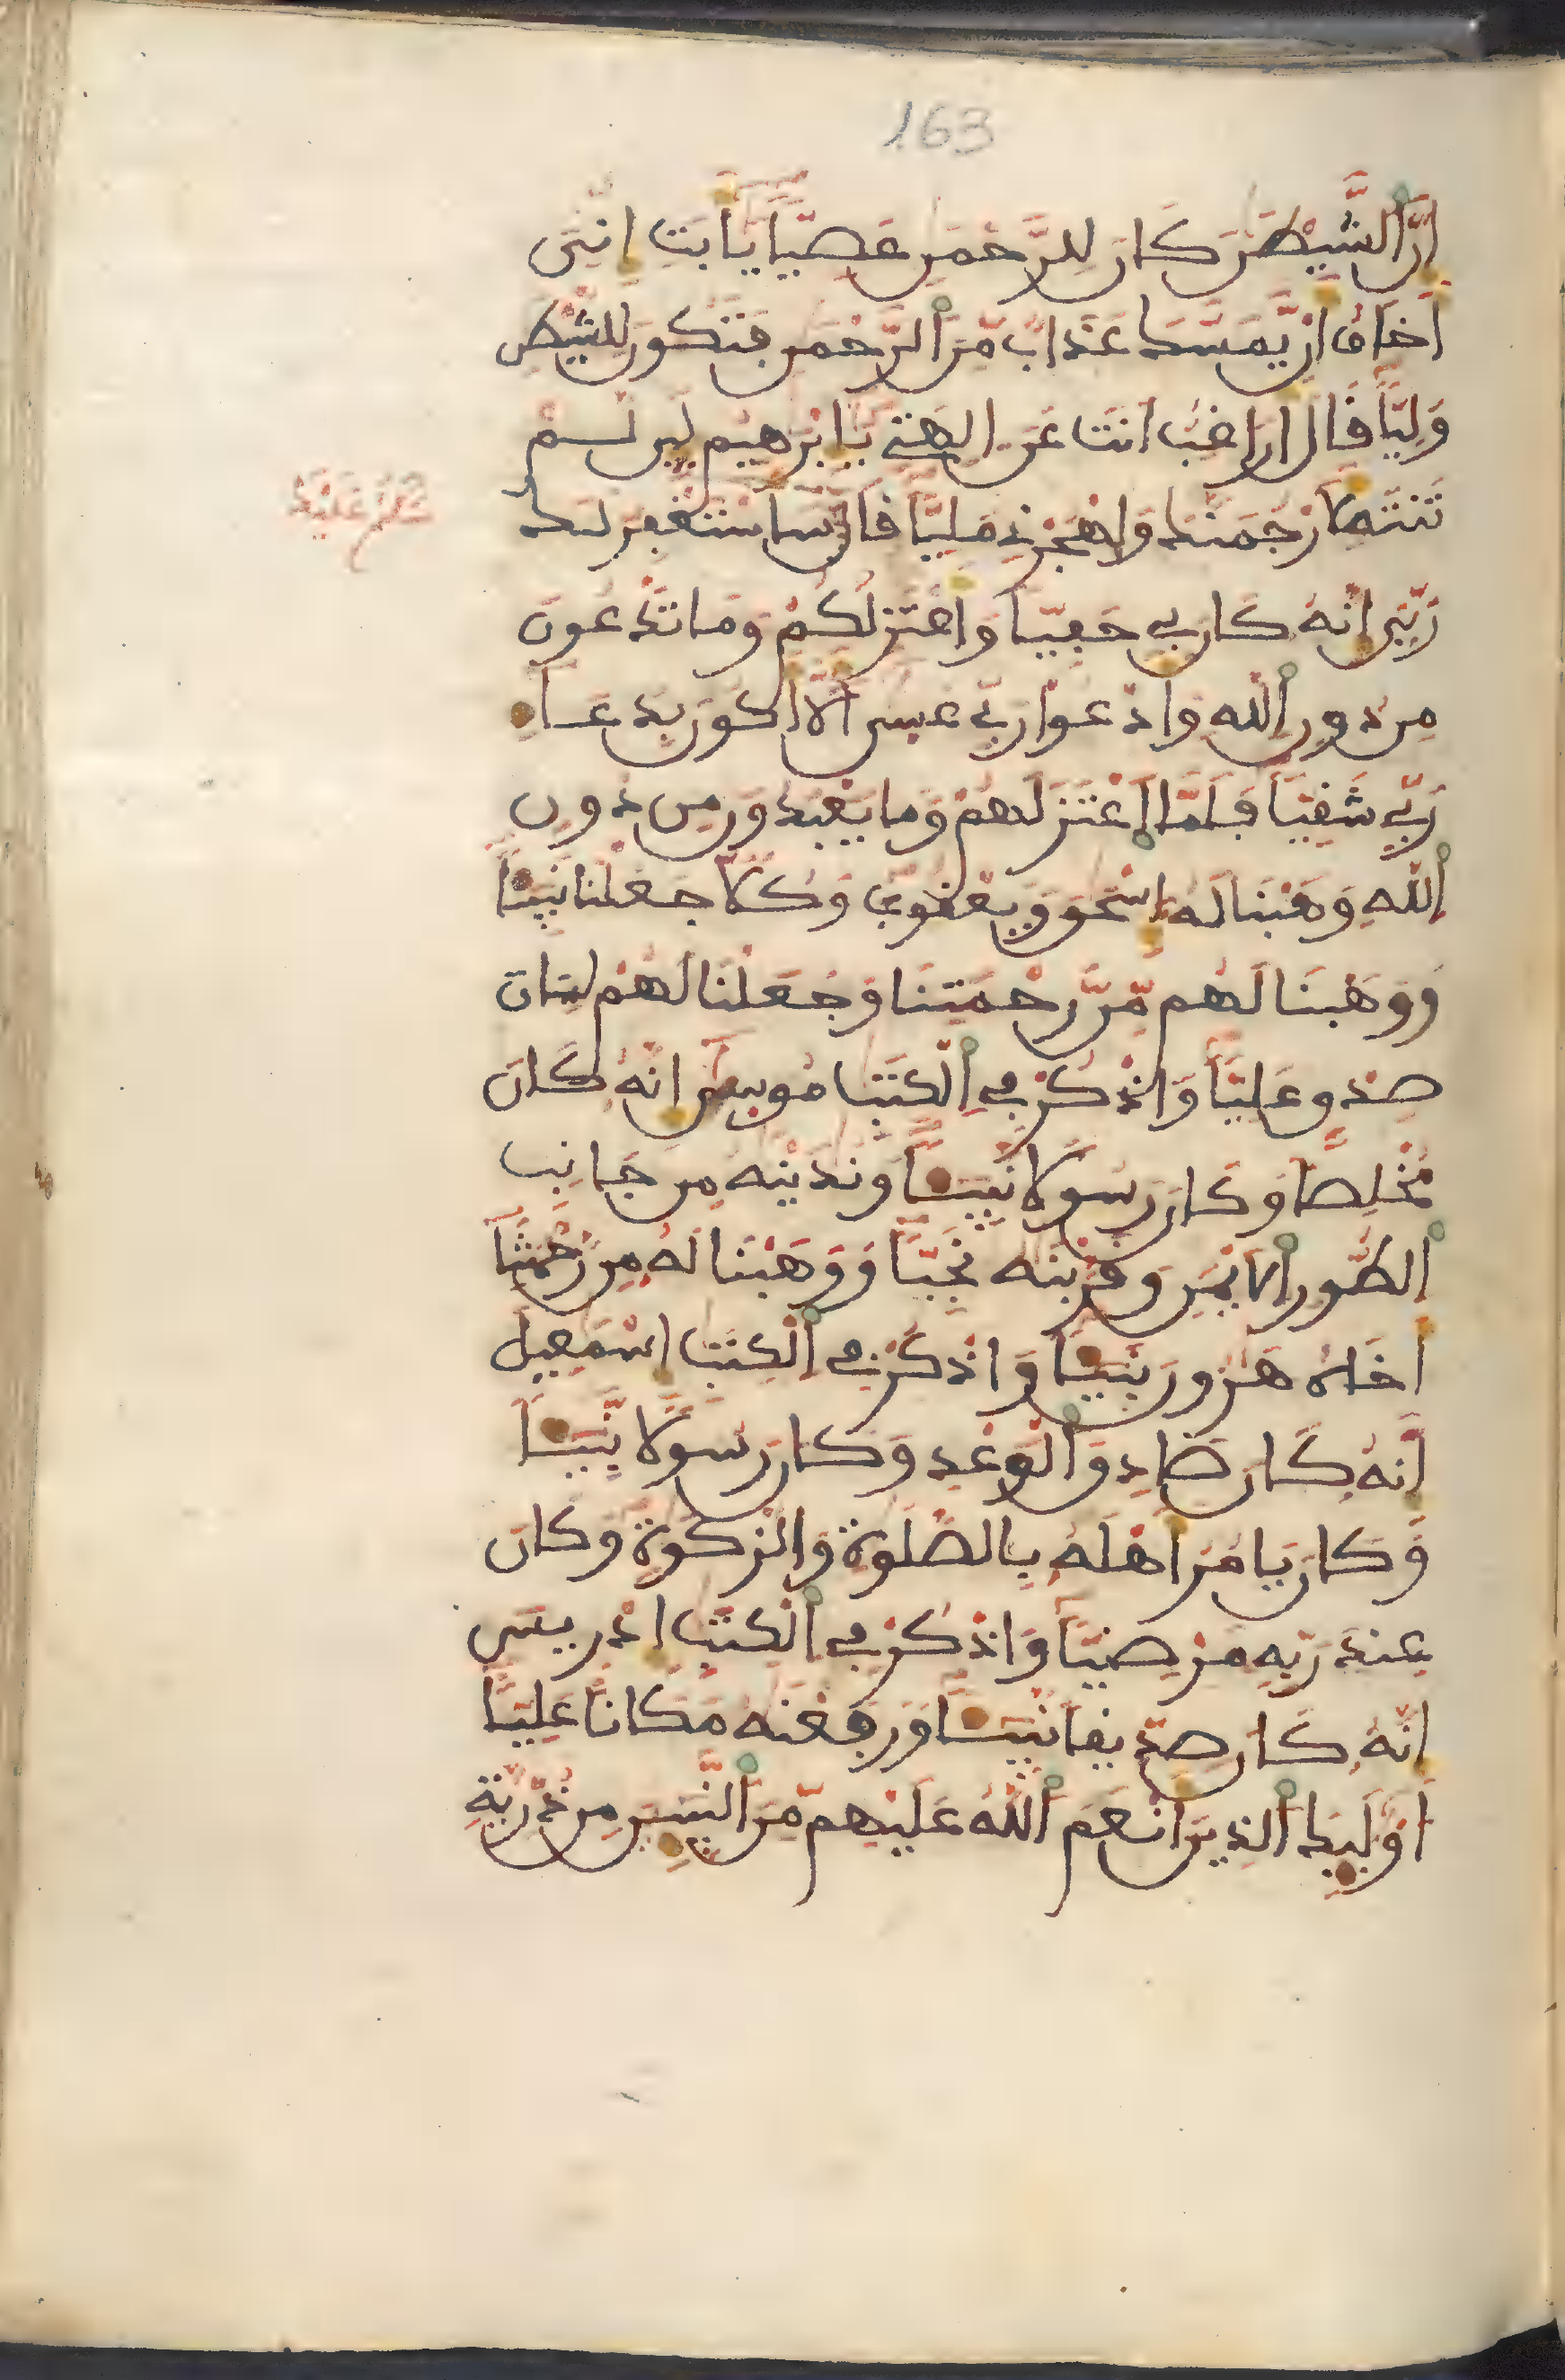 163
ان الشيطن كان للرحمن عصيا يا ابت اني
اخاف ان يمسك عذاب من الرحمن فتكون للشيطن
وليا قال اراغب انت عن الهتي يا ابرهيم لين لم
تنته لارجمنك واهجرني مليا قال ساستغفر لك
سلم عليك
ربي انه كان بي حفيا واعتزلكم وما تدعون
من دون الله وادعوا ربي عسى الا اكون بدعاء
ربي شقيا فلما اعتزلهم وما يعبدون من دون
الله وهبنا له اسحق ويعقوب وكلا جعلنا نبيئا
ووهبنا لهم من رحمتنا وجعلنا لهم لسان
صدق عليا واذكر في الكتب موسى انه كان
مخلصا وكان رسولا نبيئا وندينه من جانب
الطور الايمن وقربنه نجيا ووهبنا له من رحمتنا
اخاه هرون نبيئا واذكر في الكتب اسمعيل
انه كان صادق الوعد وكان رسولا نبيئا
وكان يامر اهله بالصلوة والزكوة وكان
عند ربه مرضيا واذكر في الكتب ادريس
انه كان صديقا نبيئا ورفعنه مكانا عليا
اوليك الذين انعم الله عليهم من النبيين من ذرية